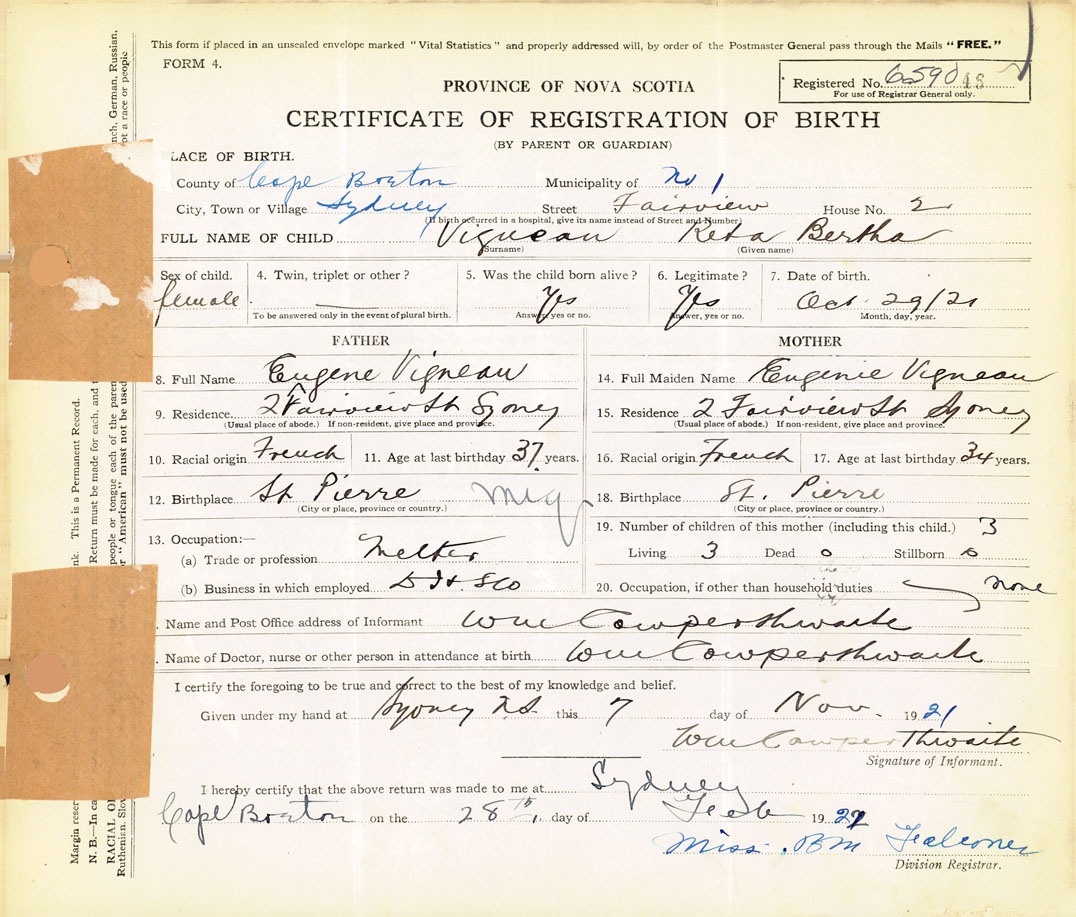 This form if placed in an unsealed envelope marked "Vital Statistics" and properly addressed will, by order of the Postmaster General pass through the Mails "FREE."
FORM 4.
Registered No. 6590
For use of Registrar General only.
PROVINCE OF NOVA SCOTIA
CERTIFICATE OF REGISTRATION OF BIRTH
(BY PARENT OR GUARDIAN)
LACE OF BIRTH.
County of Cape Breton Municipality of No 1
City, Town or Village Sydney Street Fairview House No. 2
(If birth occurred in a hospital, give its name instead of Street and Number)
FULL NAME OF CHILD Vigneau Reta Bertha
(Surname) (Given name)
Sex of child. 4. Twin, triplet or other? 5. Was the child born alive? 6. Legitimate? 7. Date of birth.
female — Yes Yes Oct. 29/21
To be answered only in the event of plural birth. Answer, yes or no. Answer, yes or no. Month, day, year.
FATHER MOTHER
8. Full Name Eugene Vigneau 14. Full Maiden Name Eugenie Vigneau
9. Residence 2 Fairview St Sydney 15. Residence 2 Fairview St Sydney
(Usual place of abode.) If non-resident, give place and province. (Usual place of abode.) If non-resident, give place and province.
10. Racial origin French 11. Age at last birthday 37 years. 16. Racial origin French 17. Age at last birthday 34 years.
12. Birthplace St Pierre Miq 18. Birthplace St. Pierre
(City or place, province or country.) (City or place, province or country.)
19. Number of children of this mother (including this child.) 3
Living 3 Dead 0 Stillborn 0
13. Occupation:—
(a) Trade or profession Melter
(b) Business in which employed D I & S Co
20. Occupation, if other than household duties none
. Name and Post Office address of Informant Wm Cowperthwaite
. Name of Doctor, nurse or other person in attendance at birth Wm Cowperthwaite
I certify the foregoing to be true and correct to the best of my knowledge and belief.
Given under my hand at Sydney N.S. this 7 day of Nov. 1921
Wm Cowperthwaite
Signature of Informant.
I hereby certify that the above return was made to me at Sydney
Cape Breton on the 28th day of Feb 192
Miss. BM Falconer
Division Registrar.
Margin reser
N. B.—In ca
RACIAL OR
Ruthenian, Slov
nk. This is a Permanent Record.
Return must be made for each, and t
people or tongue each of the paren
or "American" must not be used
nch, German, Russian,
ot a race or people.